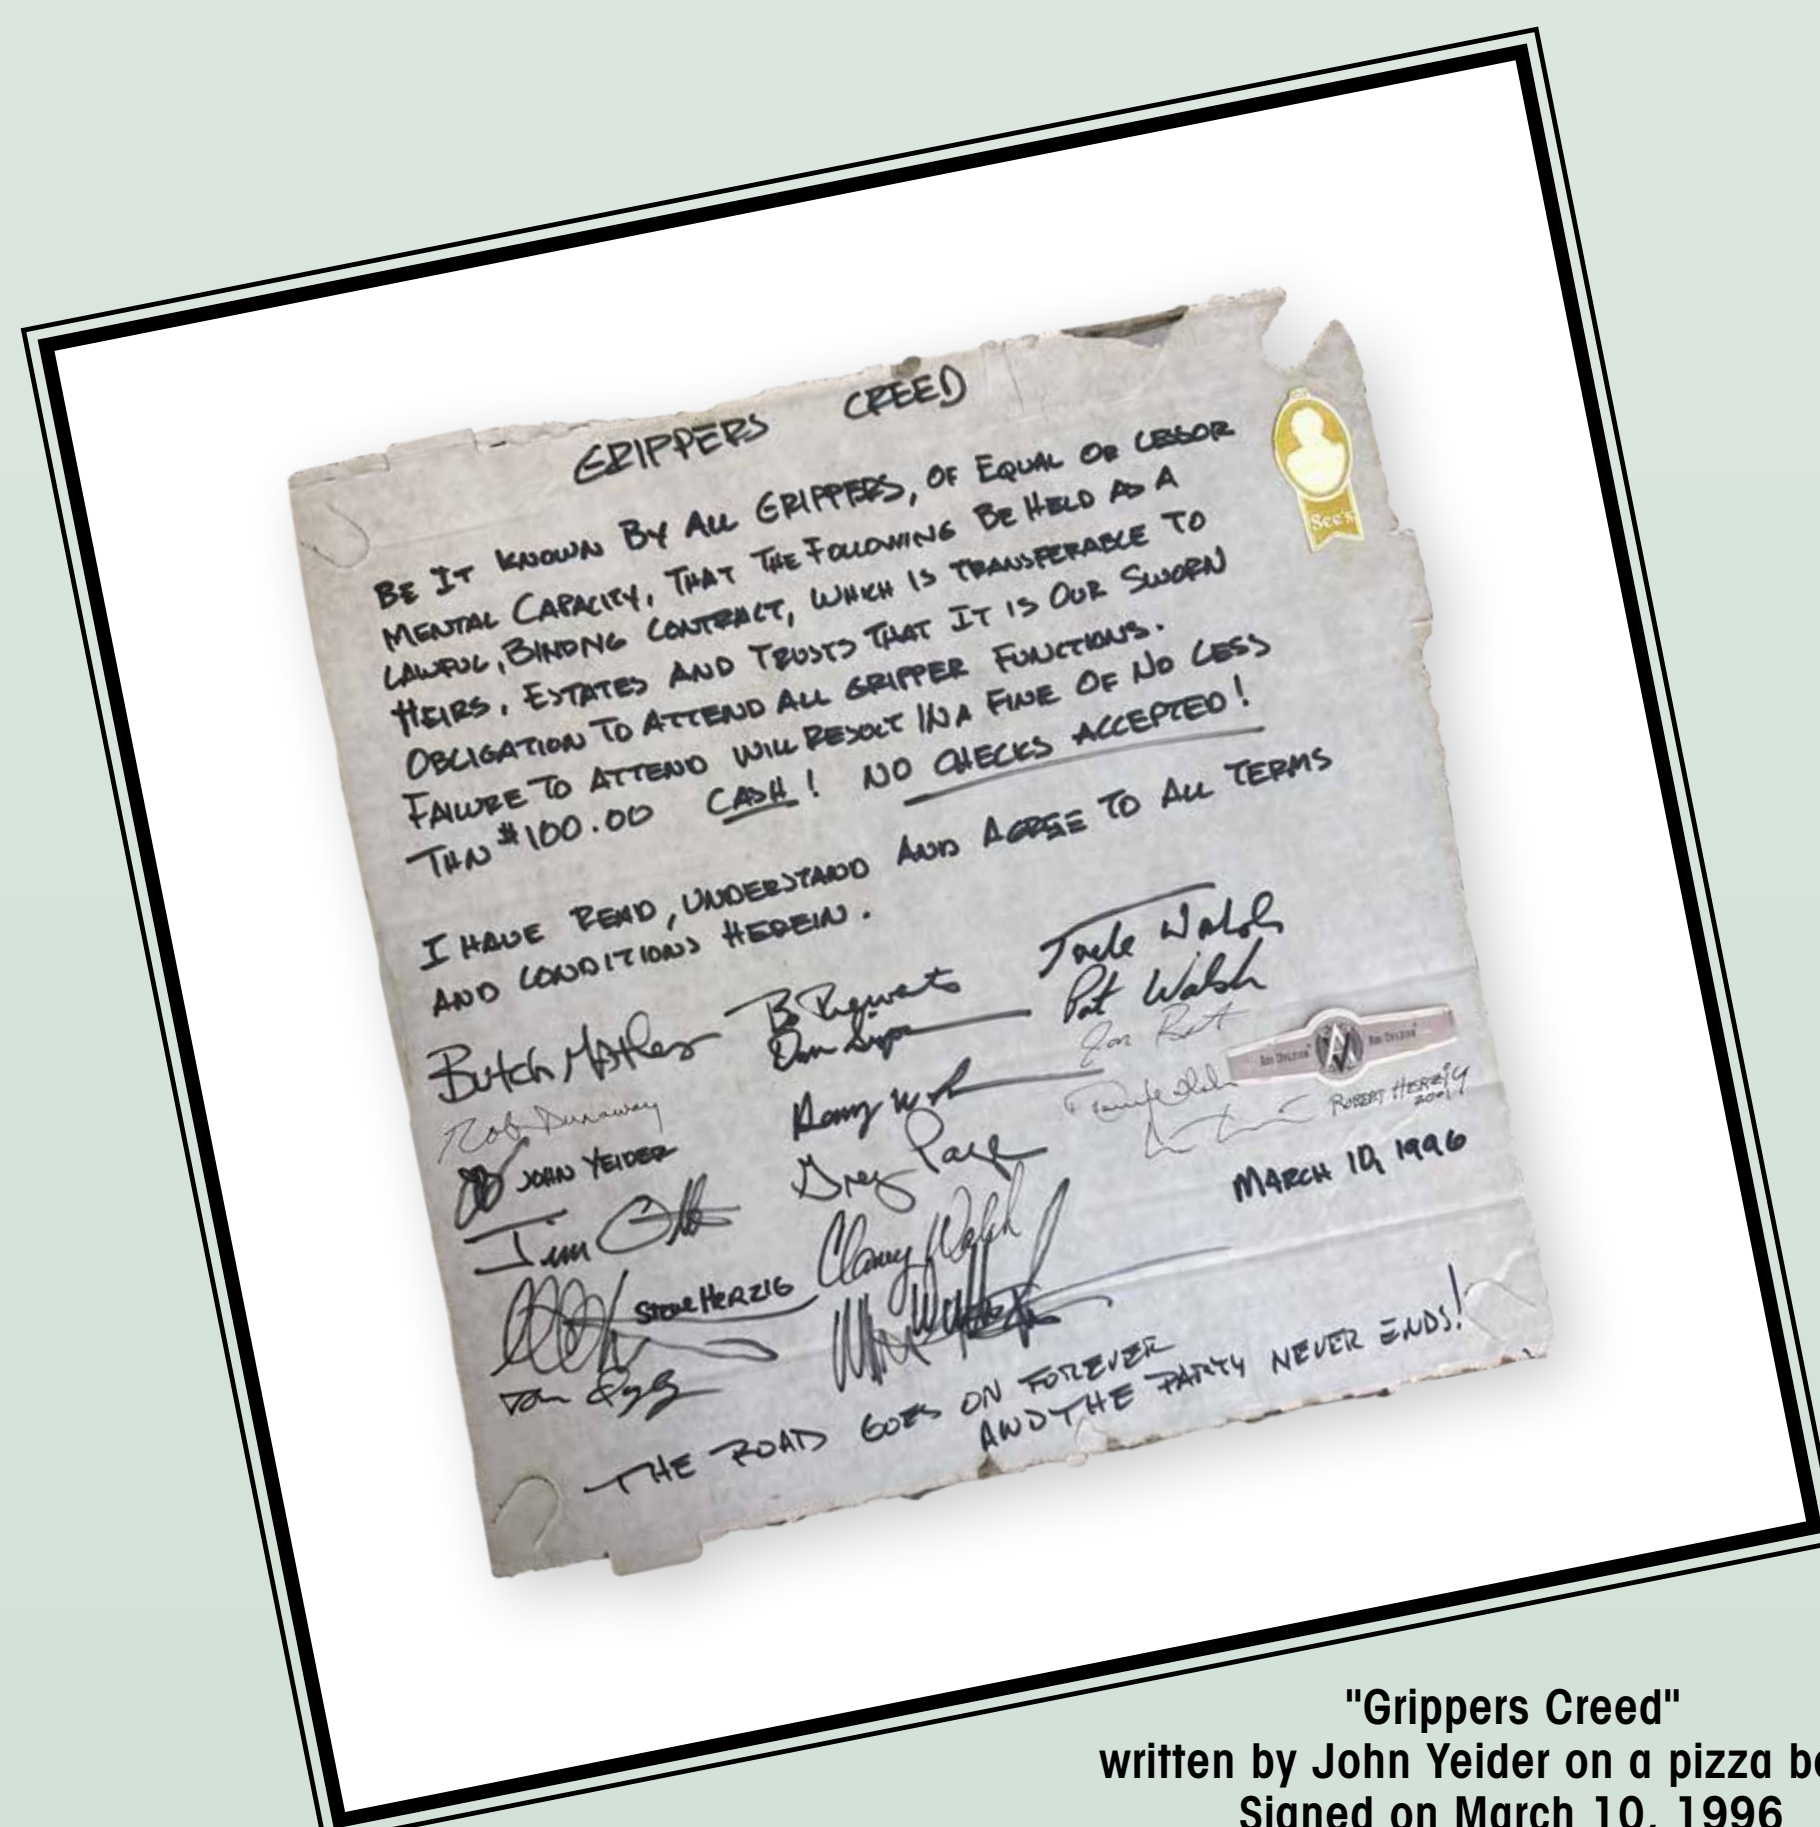 GRIPPERS CREED
BE IT KNOWN BY ALL GRIPPERS, OF EQUAL OR LESSOR
MENTAL CAPACITY, THAT THE FOLLOWING BE HELD AS A
LAWFUL, BINDING CONTRACT, WHICH IS TRANSFERABLE TO
HEIRS, ESTATES AND TRUSTS THAT IT IS OUR SWORN
OBLIGATION TO ATTEND ALL GRIPPER FUNCTIONS.
FAILURE TO ATTEND WILL RESULT IN A FINE OF NO LESS
THN $100.00 CASH! NO CHECKS ACCEPTED!
I HAVE READ, UNDERSTAND AND AGREE TO ALL TERMS
AND CONDITIONS HEREIN.
See's
Butch Mather
Rob Dunaway
JOHN YEIDER
Jim
STEVE HERZIG
Tom
B
Dan
Greg Page
Clancy Walsh
Jack Walsh
Pat Walsh
Jon
ROBERT HERZIG
2001
MARCH 10, 1996
THE ROAD GOES ON FOREVER
AND THE PARTY NEVER ENDS!
"Grippers Creed"
written by John Yeider on a pizza bo
Signed on March 10, 1996